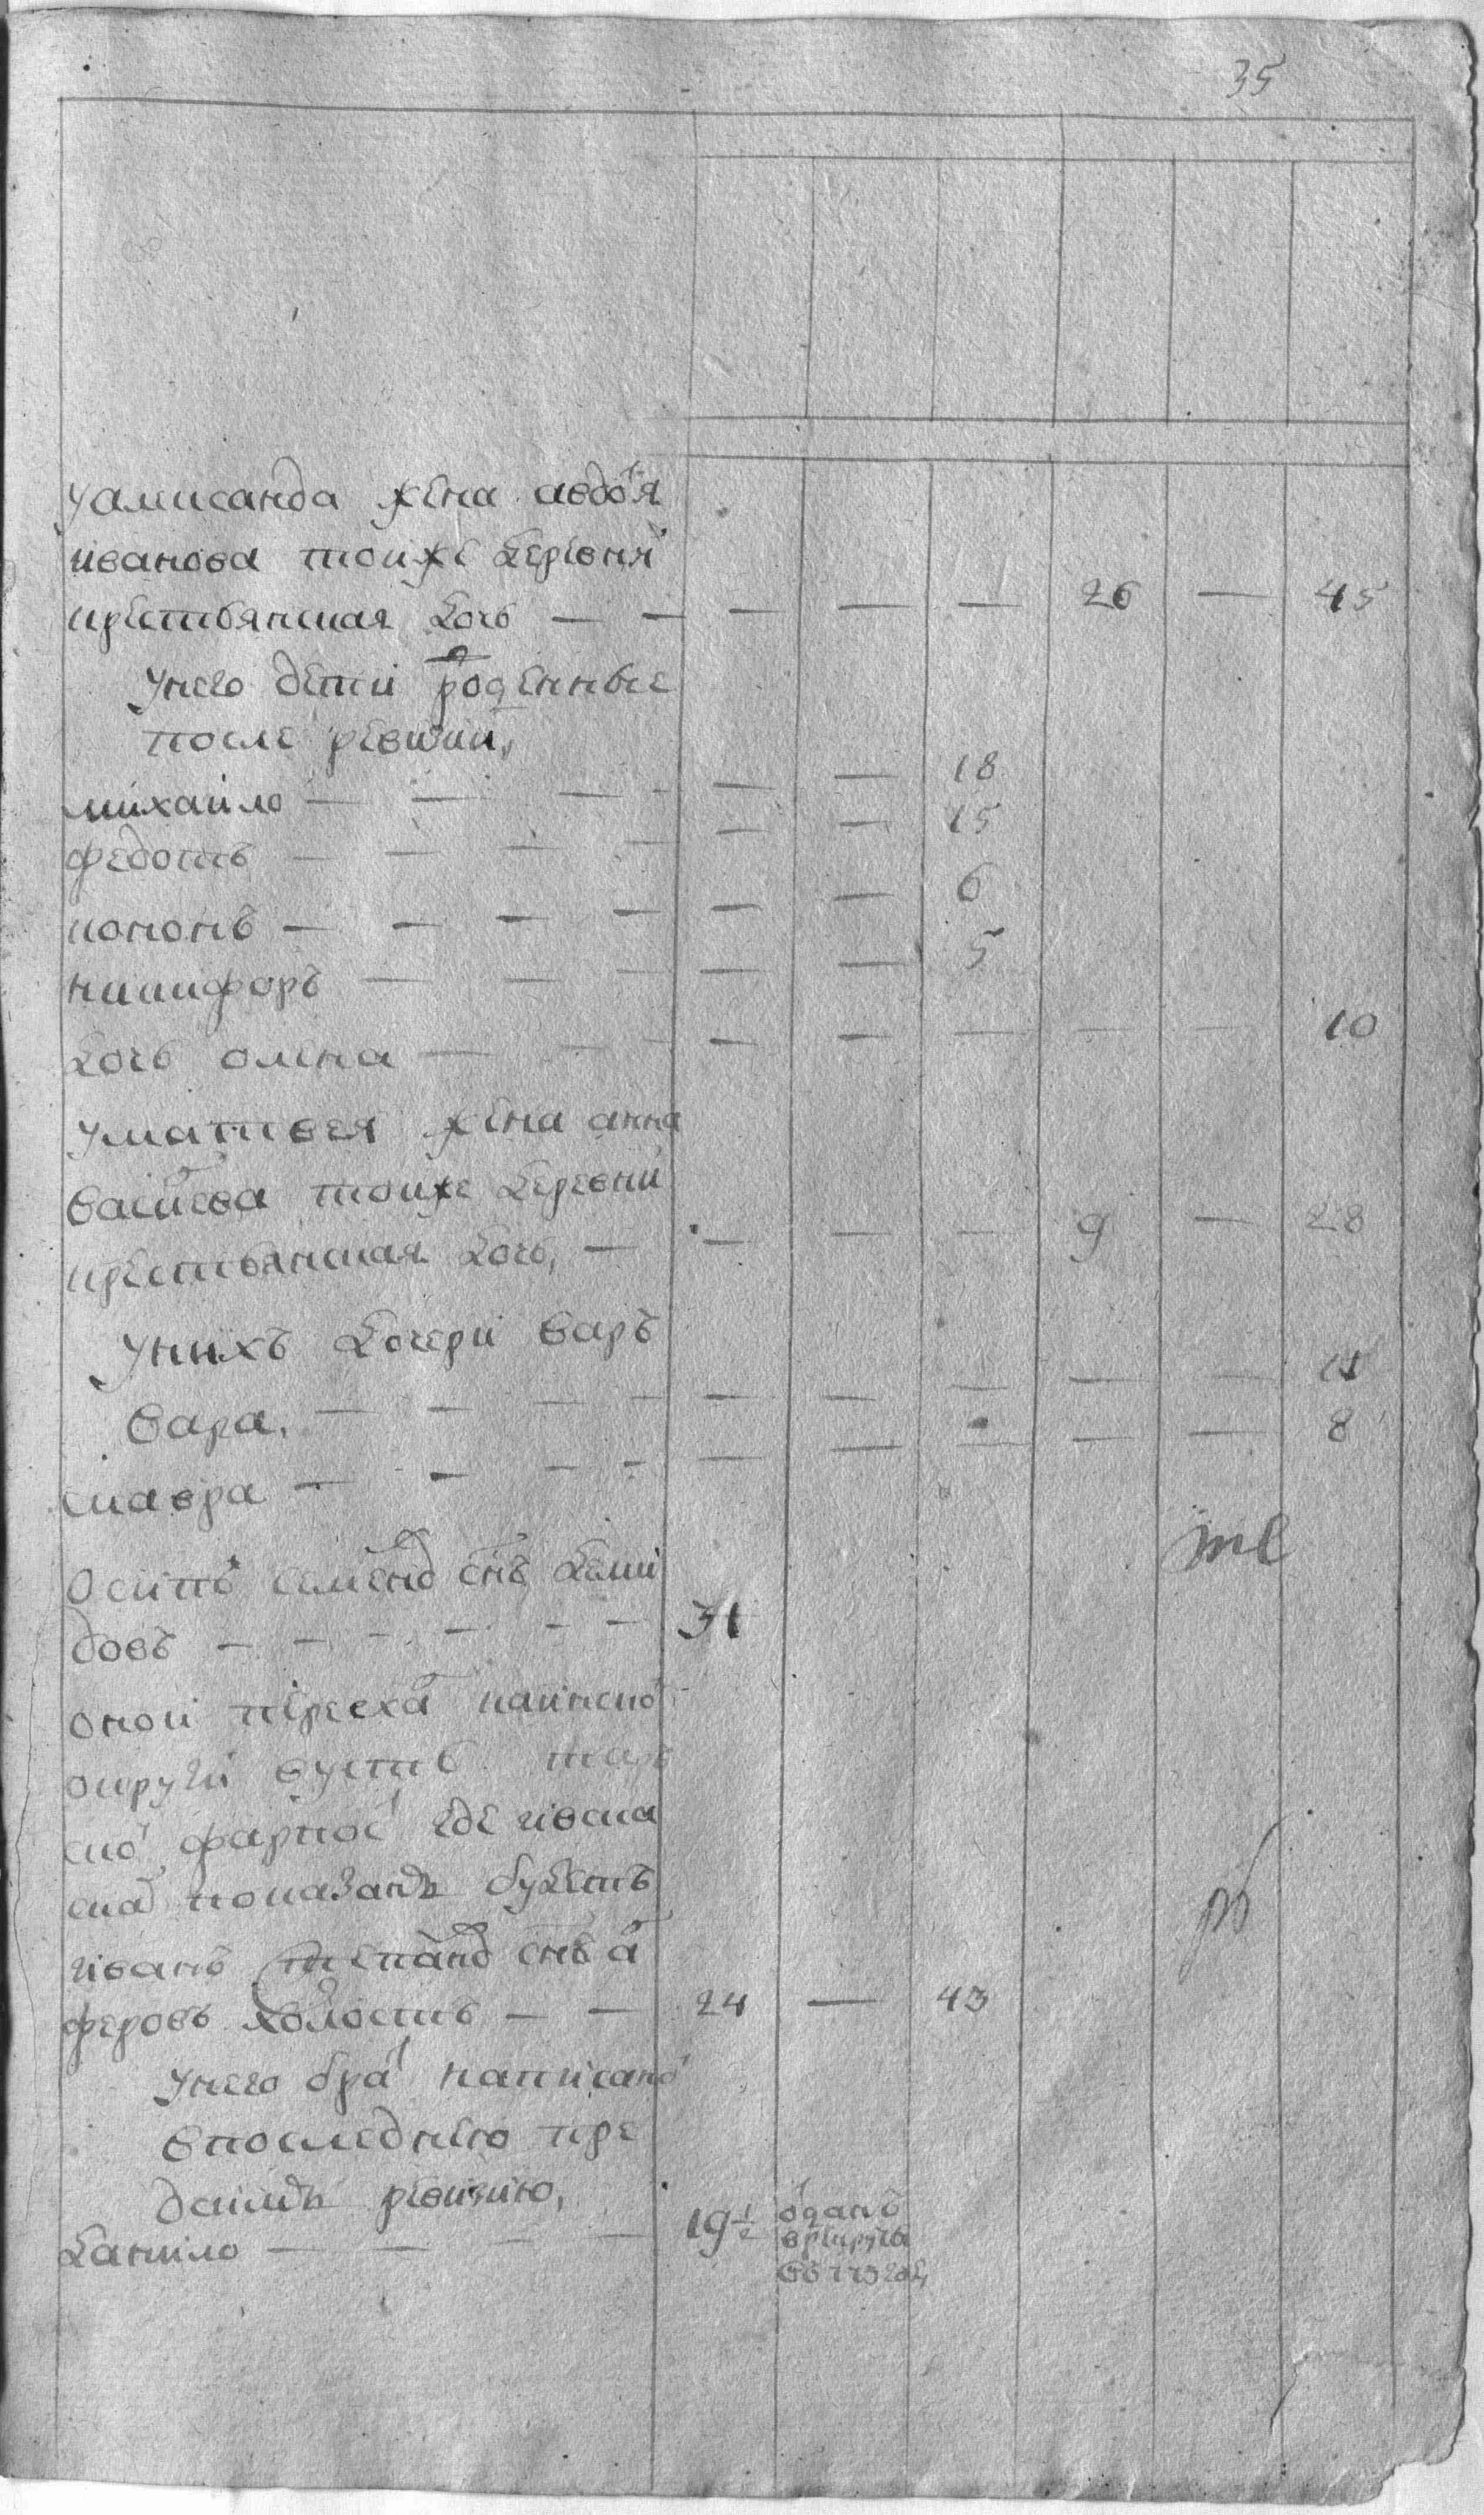 35
уалисанда жена авдотя
иванова тоиже деревни
крестьянская дочь — — — — — 26 — 45
унего дети роженные
после ревизии,
михаило — — — — — — 18
федотъ — — — — — — 15
кононъ — — — — — — 6
никифоръ — — — — — 5
дочь олена — — — — — — — — 10
уматвея жена анна
васильева тоиже деревни
крестьянская дочь, — — — — 9 — 28
унихъ дочери варъ
вара, — — — — — — — — — 15
мавра — — — — — — — — — 8
осипъ семеновъ снъ деми
довъ — — — — — — 31
оной переехалъ каинской
округи вусть тар
ской фарпос где иска
ска показанъ будетъ
иванъ степановъ снъ ал
феровъ холостъ — — 24 — 43
унего братъ написанной
впоследнею пре
дсимъ ревизию,
данило — — — — 19 1/2 отданъ
врекруты